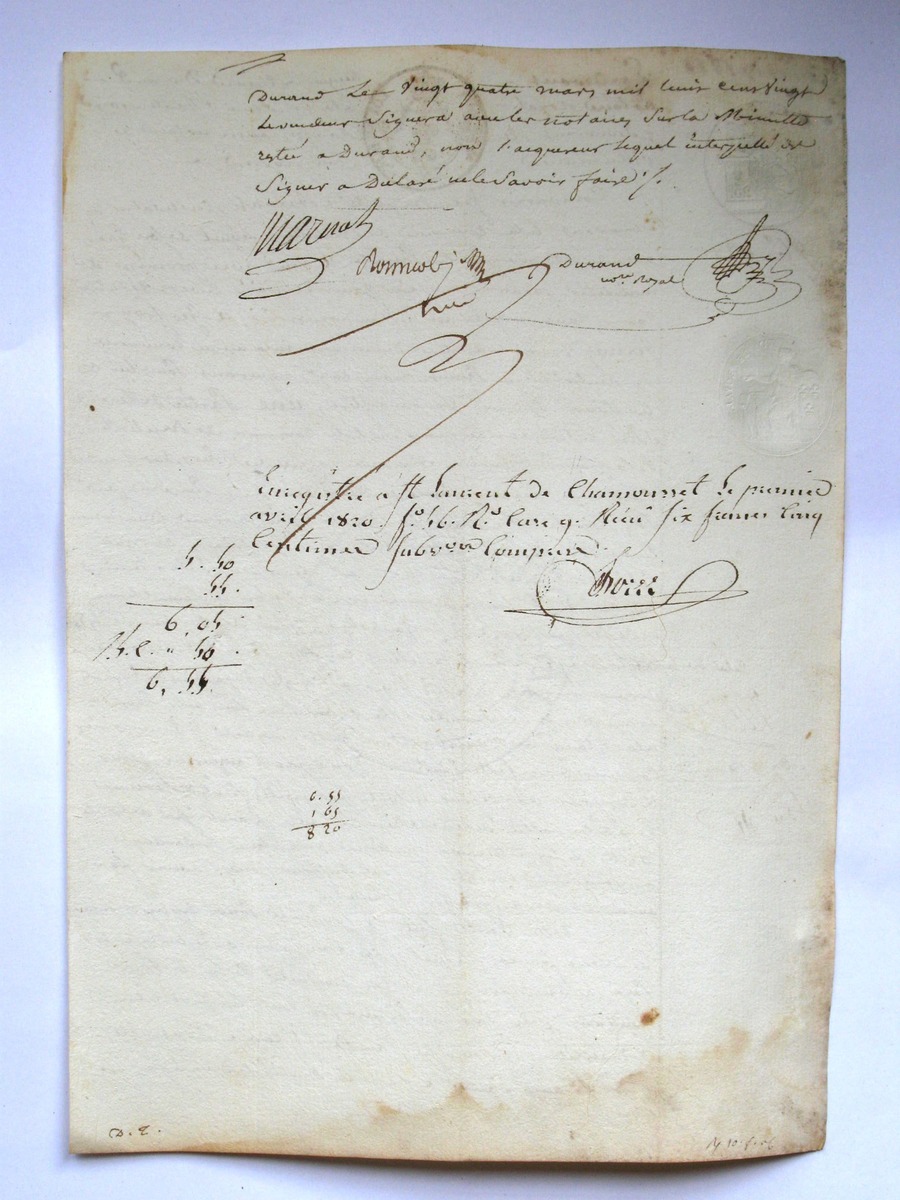 Durand Le Vingt quatre mars mil huit cent vingt
Le vendeur Signera avec les notaires Sur la Minutte
restée a Durand, non l'acquereur lequel interpellé de
Signer a Déclaré ne le Savoir faire ./.
Durand
no.re Royal
Enregistré à St Laurent de Chamousset Le premier
avril 1820. fo. 46. Ro. Case 9. Reçu Six francs Cinq
Centimes Subvon Comprise
5. 50
55.
6, 05
50
6, 55
6. 55
1 65
8 20
D. E.